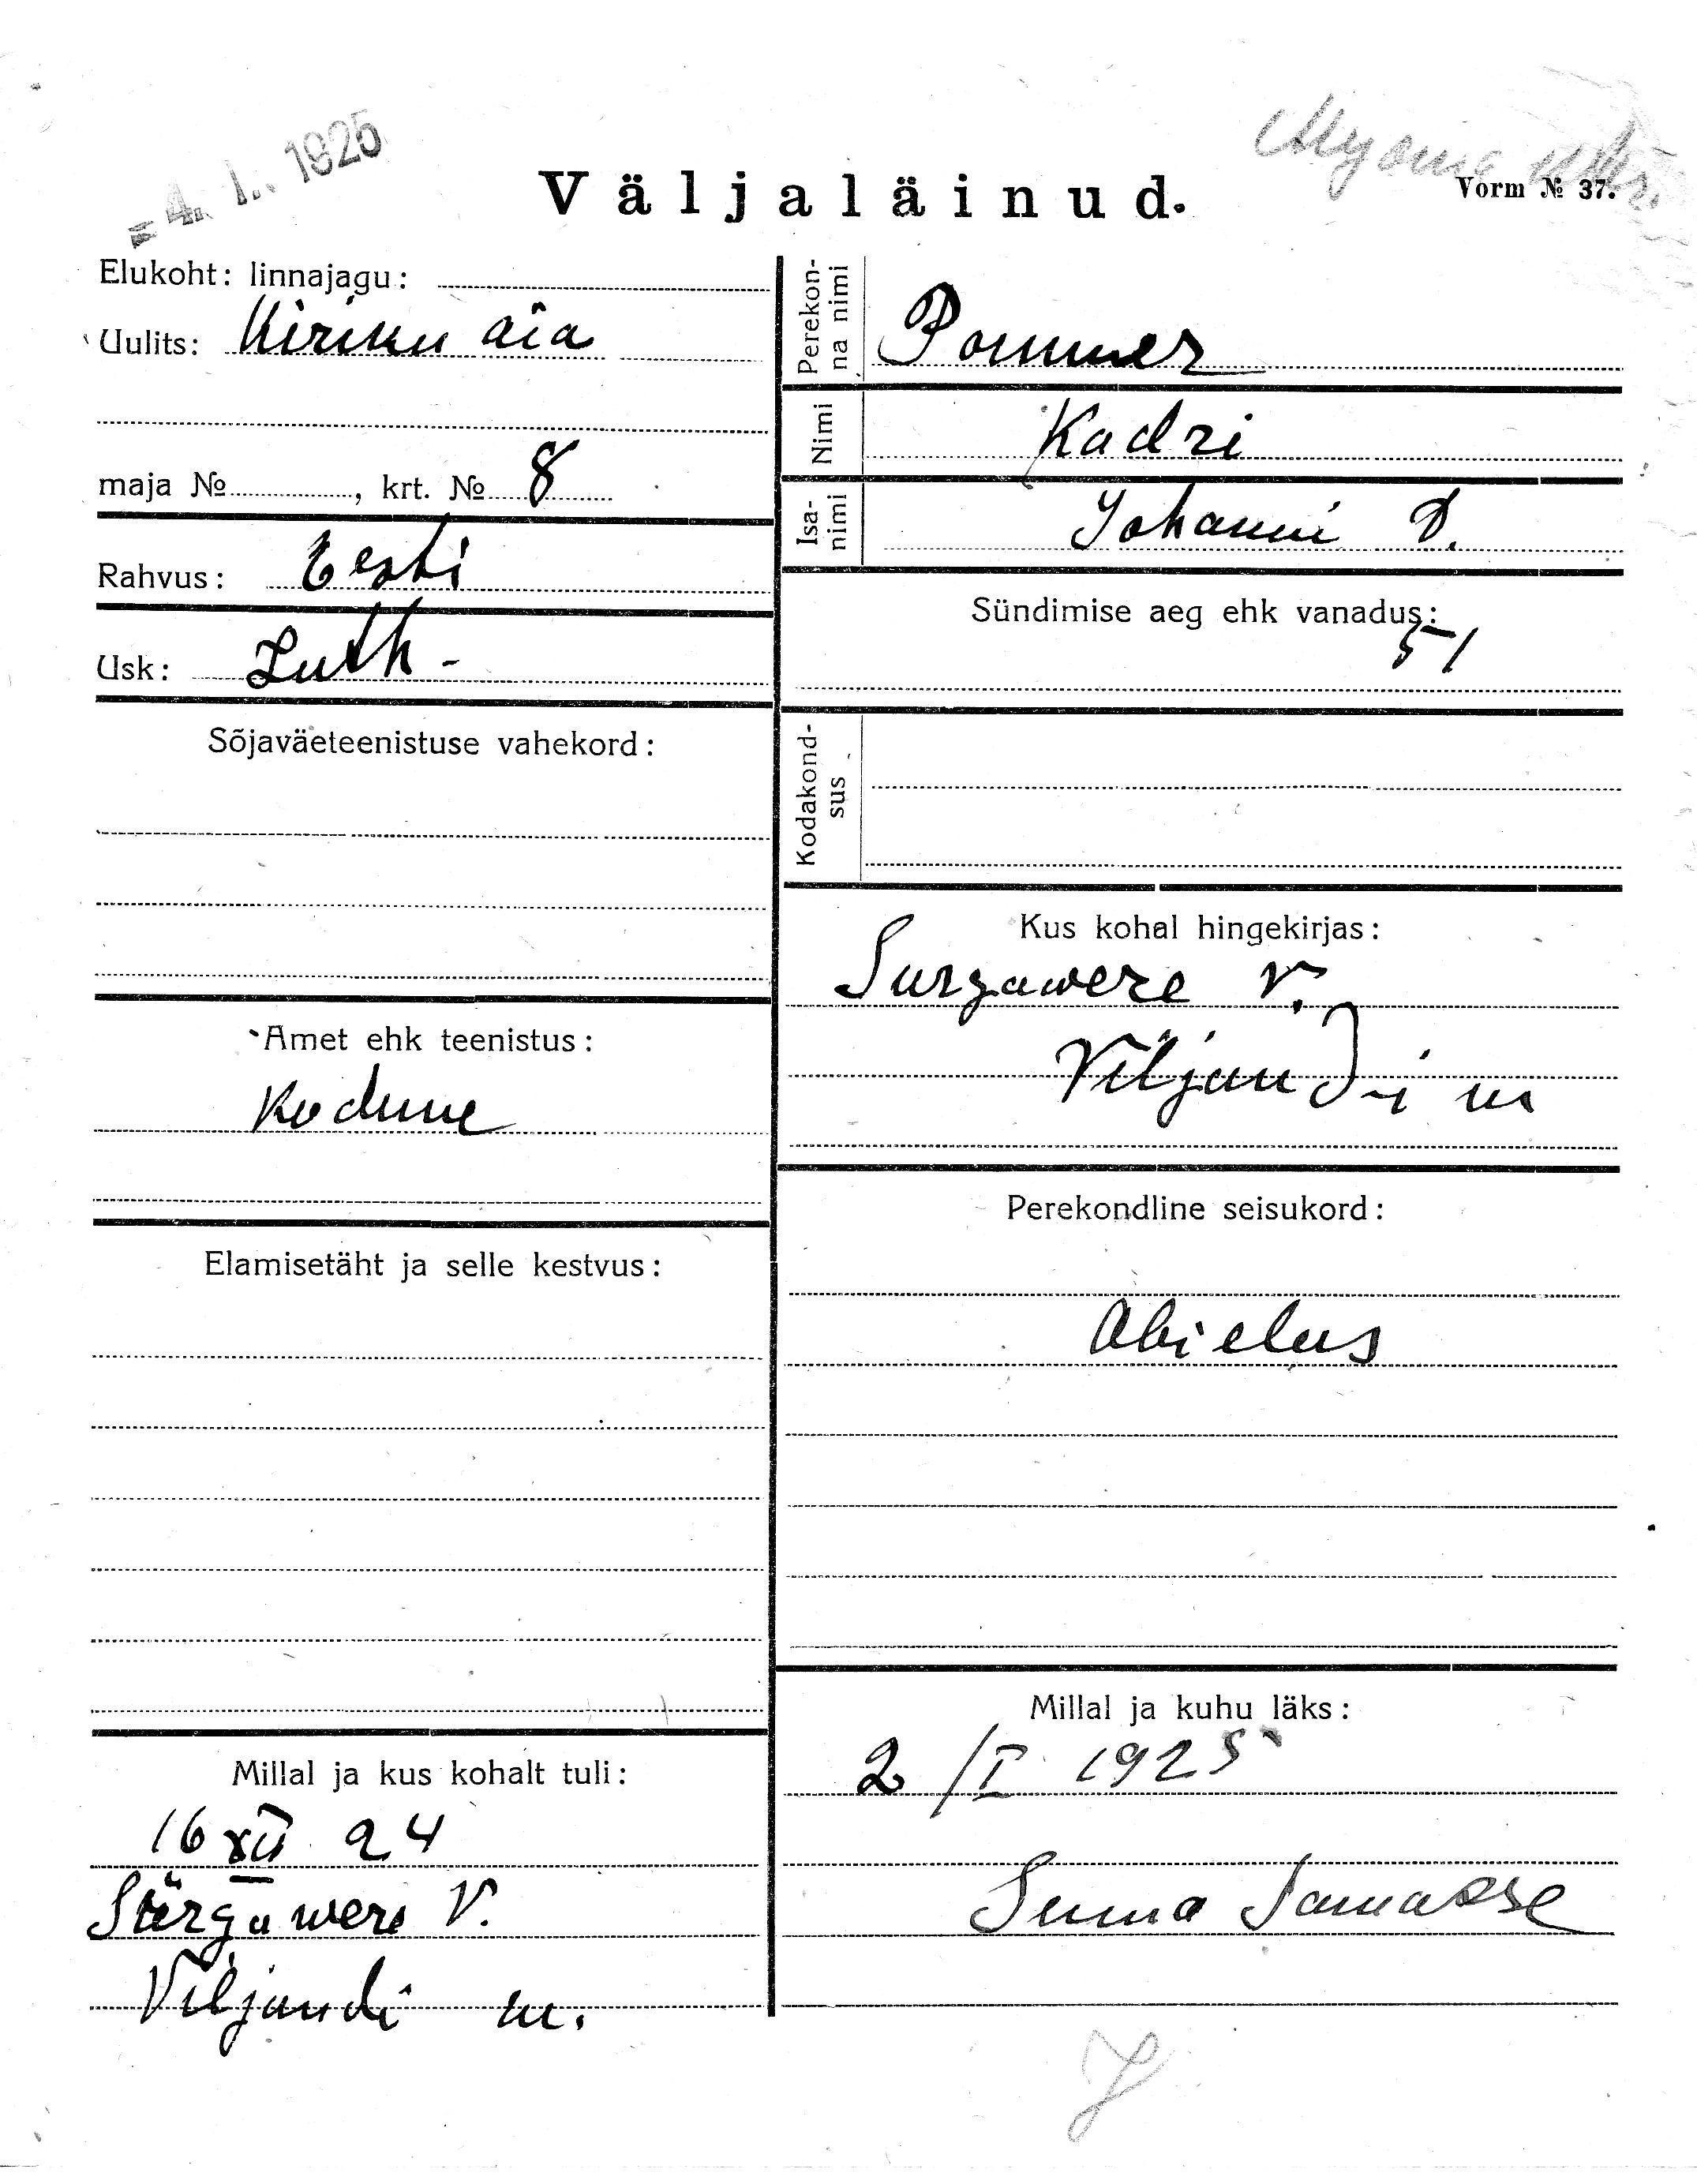 = 4. I. 1925
Väljaläinud.
Vorm № 37.
Elukoht: linnajagu:
Uulits: Kiriku aia
maja № , krt. № 8
Rahvus: Eesti
Usk: Luth-
Sõjaväeteenistuse vahekord:
Amet ehk teenistus:
Kodune
Elamisetäht ja selle kestvus:
Millal ja kus kohalt tuli:
16 XII 24
Särgawere V.
Viljandi m.
Perekon-
na nimi
Pommer
Nimi Kadri
Isa-
nimi
Johanni t.
Sündimise aeg ehk vanadus:
51
Kodakond-
sus
Kus kohal hingekirjas:
Surgawere V.
Viljandi m
Perekondline seisukord:
Abielus
Millal ja kuhu läks:
2/I 1925
Senna Samasse